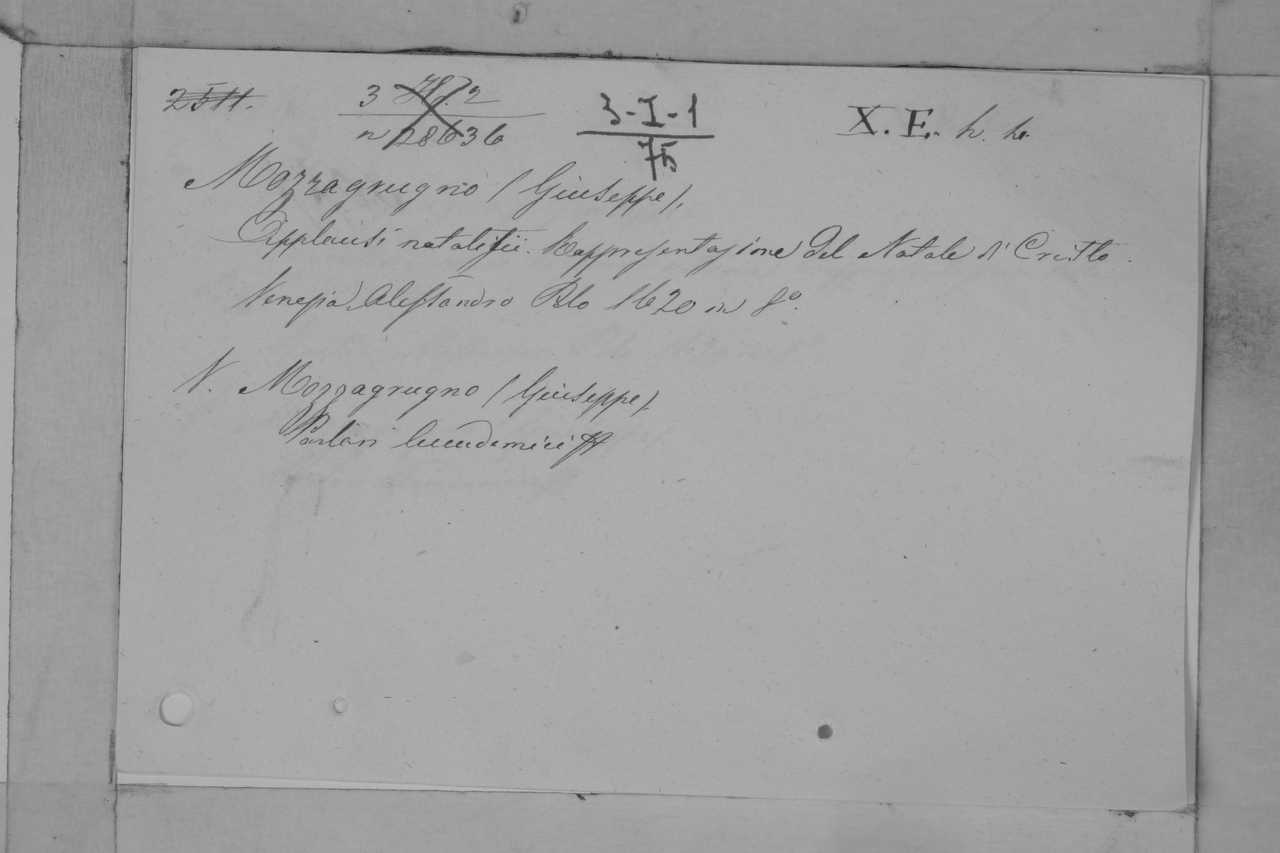 2511.
3 78.2
n 28636
3-I-1
75
X. E. h. h.
Mozzagrugno (Giuseppe).
Applausi natalizii. Rappresentazione del Natale di Cristo.
Venezia, Alessandro Polo 1620 in 8º.
V. Mozzagrugno (Giuseppe).
Parlari Accademici